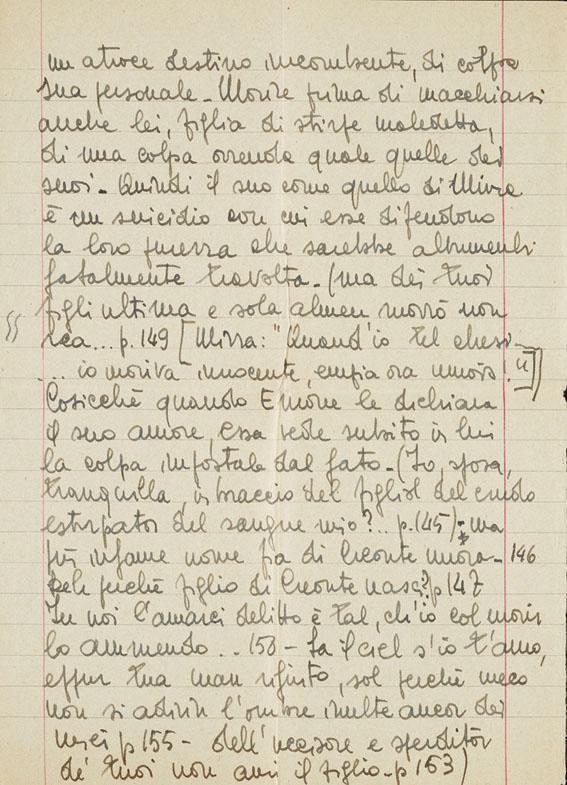 un atroce destino incombente, di colpa
sua personale - Morire prima di macchiarsi
anche lei, figlia di stirpe maledetta,
di una colpa orrenda quale quelle dei
suoi - Quindi il suo come quello di Mirra
è un suicidio con cui esse difendono
la loro purezza che sarebbe altrimenti
fatalmente travolta - (ma dei tuoi
figli ultima e sola almen morrò non
rea... p. 149 [Mirra: "Quand'io tel chiesi
... io moriva innocente, empia ora muoio!"]
Cosicchè quando Emone le dichiara
il suo amore, essa vede subito in lui
la colpa impostale dal fato - (Io, sposa,
tranquilla, in braccio del figliol del crudo
estirpator del sangue mio?.. p. 145) : ma
più infame nome fia di Creonte nuora - 146
Deh perchè figlio di Creonte nasci? p 147
In noi l'amarci delitto è tal, ch'io col morir
lo ammendo .. 150 - Sa il ciel s'io t'amo,
eppur tua man rifiuto, sol perchè meco
non si adirin l'ombre inulte ancor dei
miei p 155 - dell'uccisore e sperditor
de' tuoi non ami il figlio - p 153)